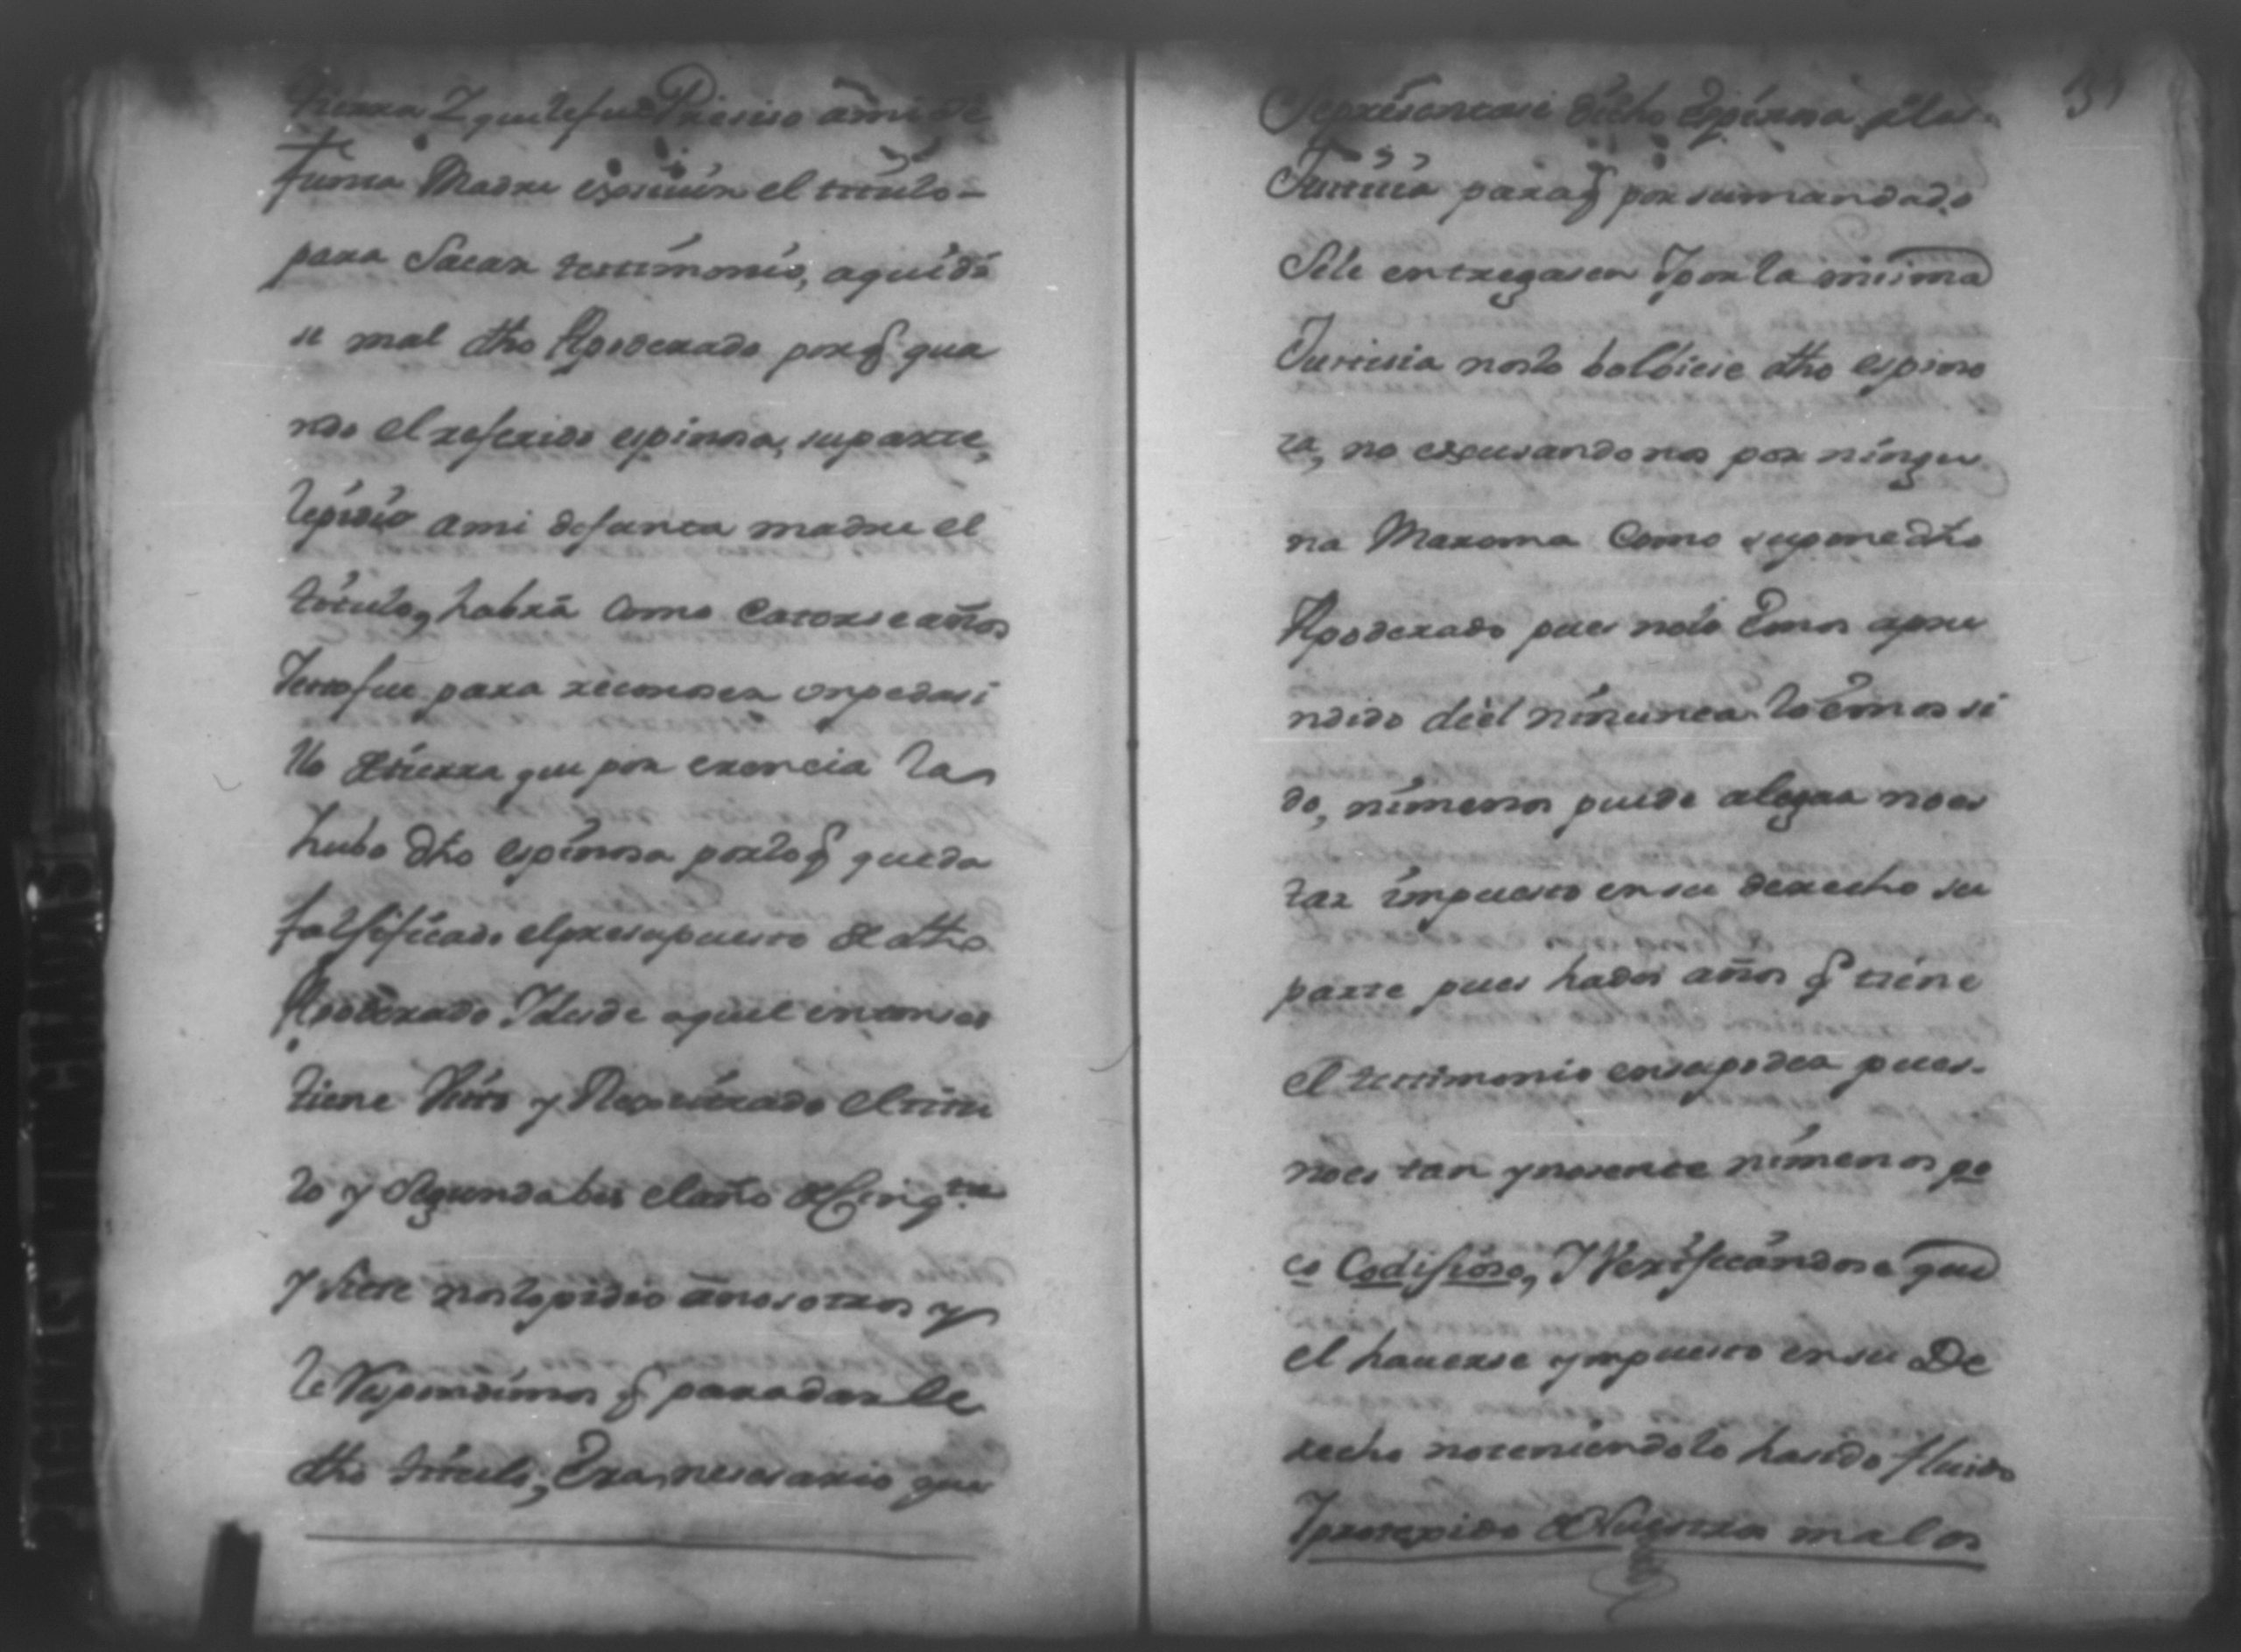 tierra Y que le fue Presiso ami de
funta Madre esivir el titulo -
para Sacar testimonio, aquidi
se mal dho Apoderado porq̃ qua
ndo el referido espinosa, suparte,
lepidio ami defunta madre el
titulo, habrá Como Catorse años
Yestofue para reconoser onpedasi
llo detierra que por erencia la
hubo dho espinosa porloq̃ queda
falsificado elpresupuesto de dho
Apoderado Ydesde aquel entonses
tiene Visto y Registrado eltitu
lo y Segundabes elaño de Cinqta
y Siete noslopidio anosotros y
le Respondimos q̃ paradarle
dho titulo, Era, nesesario que
Sepresentase dicho Espinosa ala
Justicia paraq̃ por sumandado
Sele entregasen Yporla misma
Justisia noslo bolbiese dho espino
sa, no escusandonos por ningu
na Maroma Como supone dho
Apoderado pues nolo Emos apre
ndido diel ninunca lo emos si
do, nimenos puede alegar noes
tar impuesto ensu derecho su
parte pues hados años q̃ tiene
el testimonio ensupoder pues-
noes tan ynosente nimenos po
co Codisioso, YVerificandose que
el hauerse ympuesto ensu De
recho noteniendolo hasido fluido
Yprosepido de Nuestra malos